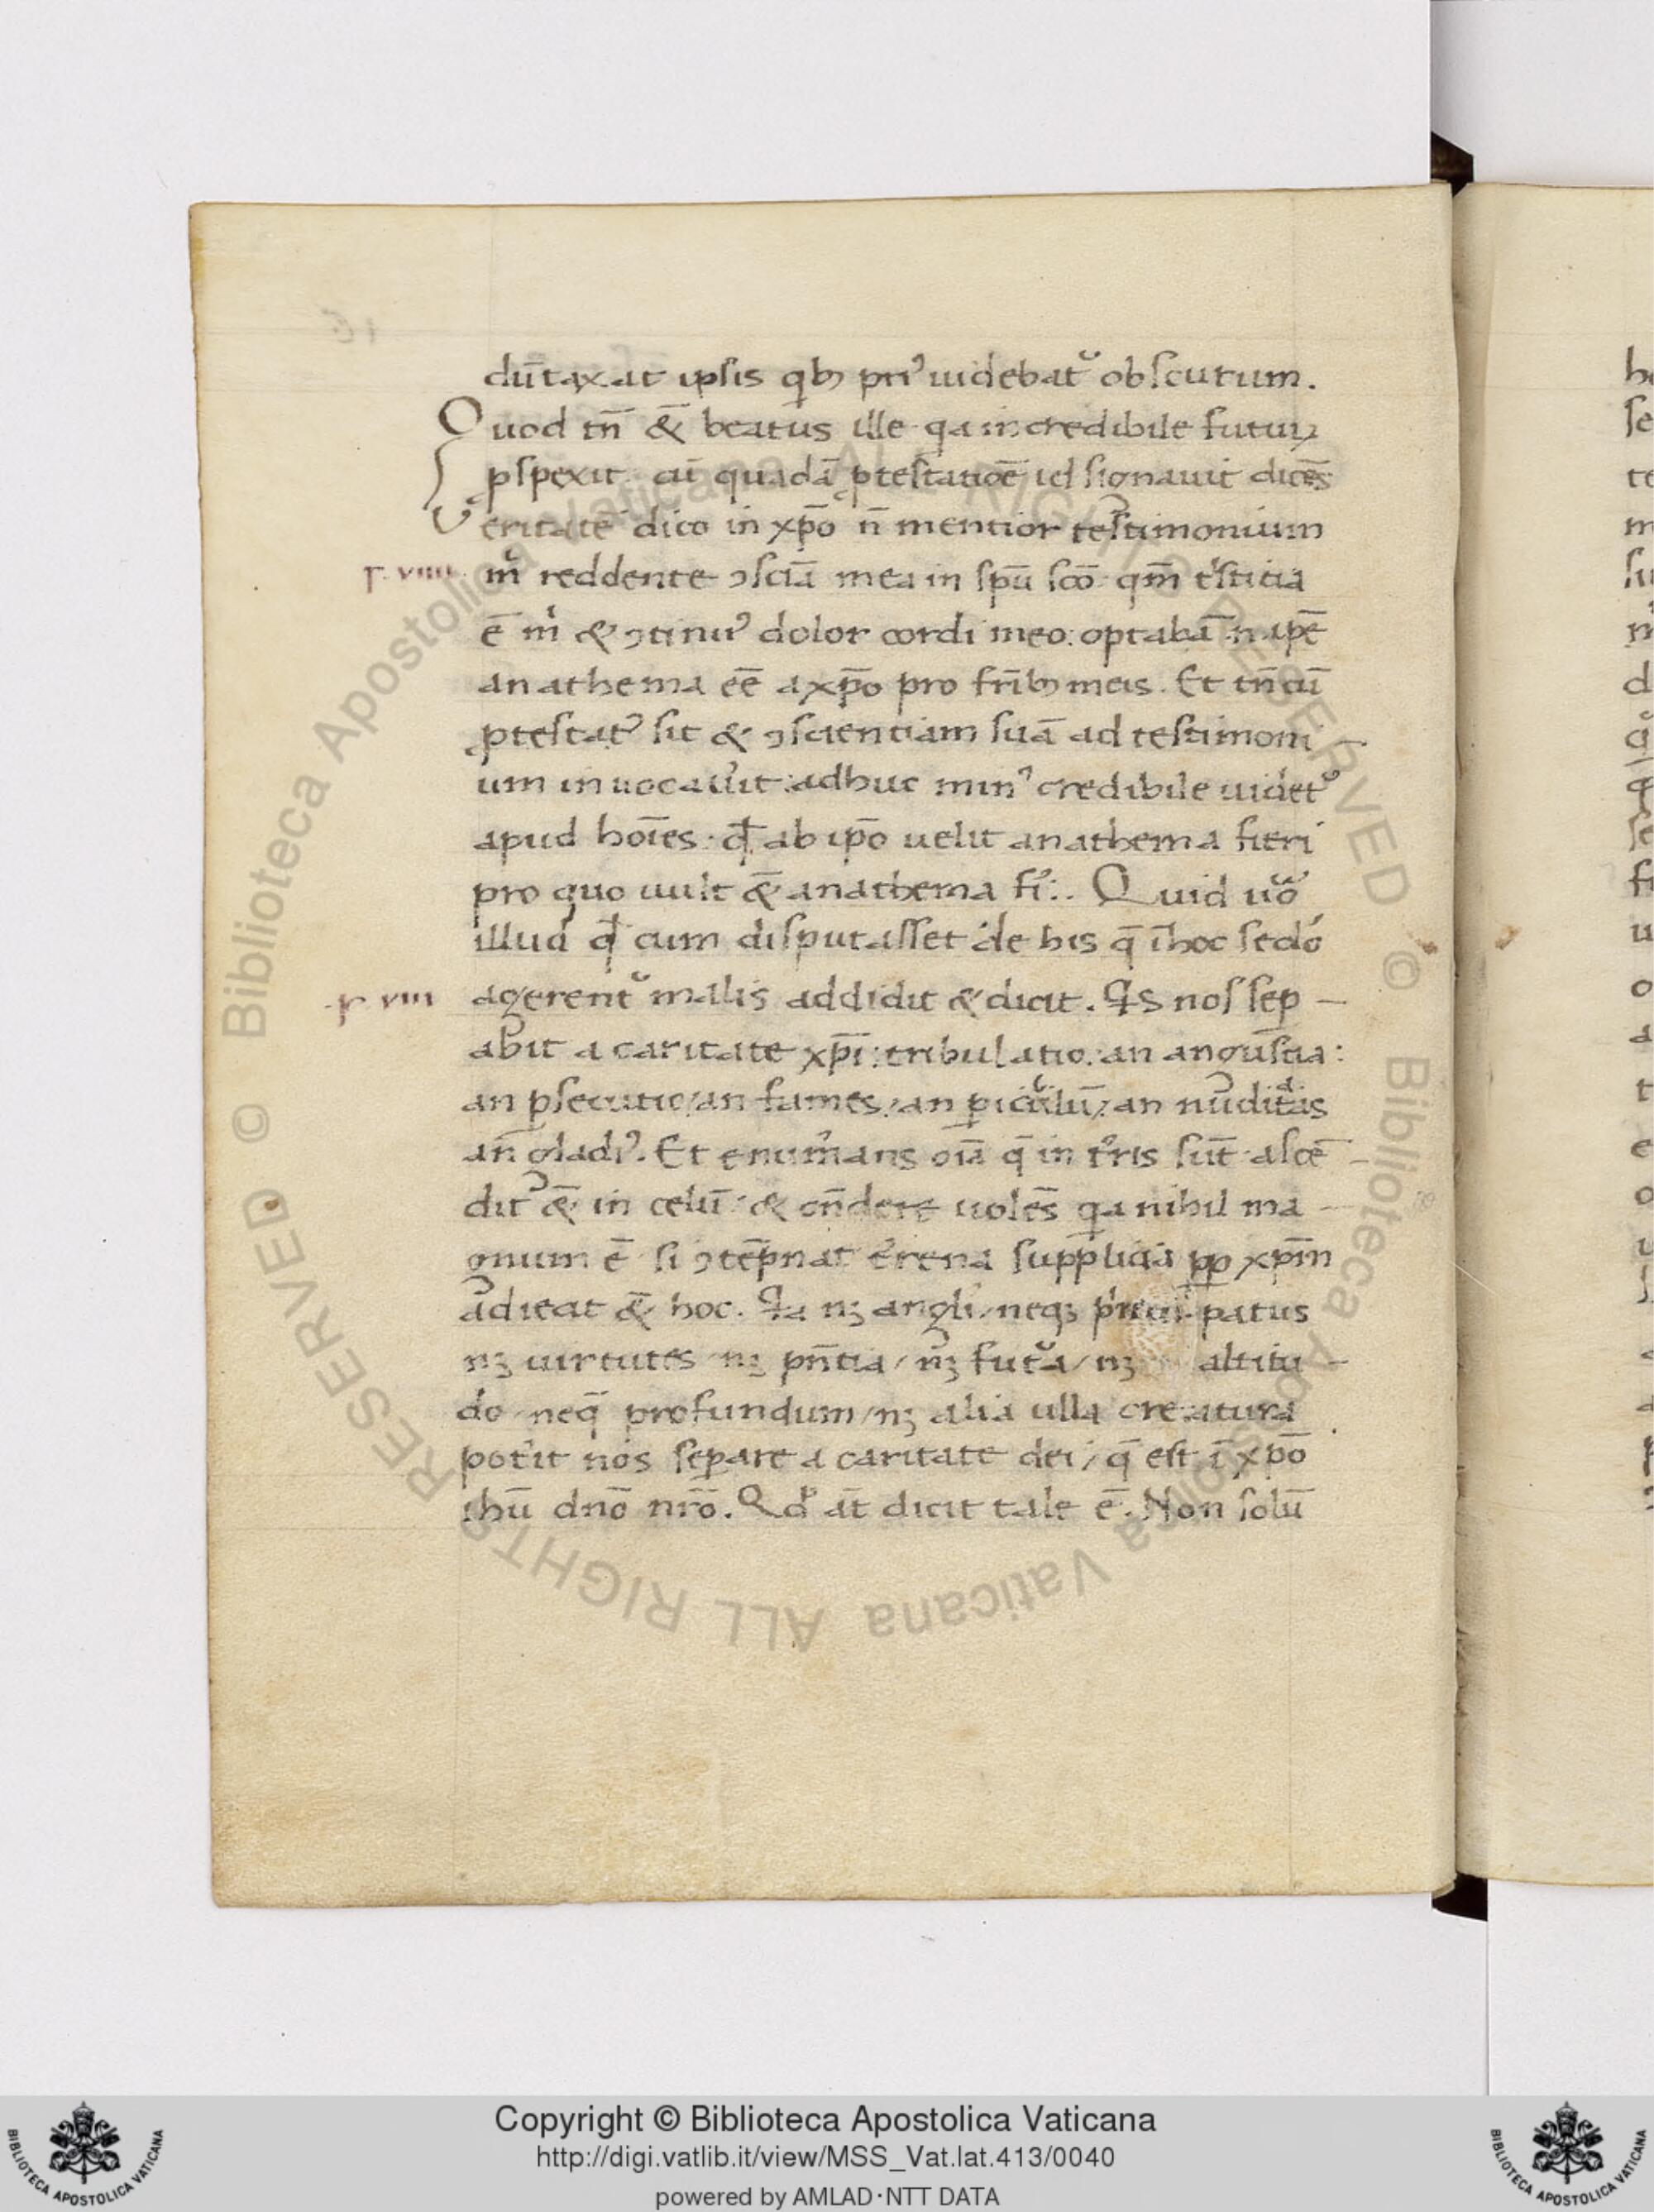 dūtaxat ipsis qb; pri⁹ uidebat᷑ obscurum.
Quod tn̄ & beatus ille qa incredibile futuꝝ
ꝓspexit. cū quadā ꝓtestatioē id signauit dicēs
Veritatē dico in xp̄o n̄ mentior testimonium
r. viiii. m̓ reddente ꝯsciā mea in spū scō: qm̄ tͥstitia
ē m̓ & ꝯtinu⁹ dolor cordi meo: optabā n. ip̄e
anathema eē a xp̄o pro frīb; meis. Et tn̄ cū
ꝓtestat⁹ sit & ꝯscientiam suā ad testimoni
um inuocauit: adhuc min⁹ credibile uidet᷑
apud hoīes. qd̄ ab ip̄o uelit anathema fieri
pro quo uult & anathema fi̓. Quid uō
illud qd̄ cum disputasset de his q̄ ī hoc sc̄do
r viii agerent᷑ malis addidit & dicit. Qis nos sep
abit a caritate xp̄i: tribulatio: an angustia:
an ꝑsecutio / an fames / an ꝑiculū / an nuditas
an gladi⁹. Et enum̓ans oīa q̄ in t̓ris sūt ascē
dit & in celū & on̄dere uolēs qa nihil ma
gnum ē si ꝯtēpnat t̓rena supplicia pp xp̄m
adieat & hoc. Qa n; angli / neq; pͥncipatus
n; uirtutes n; pn̄tia / n; futᷓa / n; altitu
do / neq̄ profundum / n; alia ulla creatura
pot̓it nos seꝑare a caritate dei / q̄ est ī xp̄o
ihū dn̄o nr̄o. Qd̓ āt dicit tale ē. Non solū
Copyright © Biblioteca Apostolica Vaticana
http://digi.vatlib.it/view/MSS_Vat.lat.413/0040
powered by AMLAD·NTT DATA
BIBLIOTECA APOSTOLICA VATICANA
BIBLIOTECA APOSTOLICA VATICANA
© Biblioteca Apostolica Vaticana ALL RIGHTS RESERVED © Biblioteca Apostolica Vaticana ALL RIGHTS RESERVED